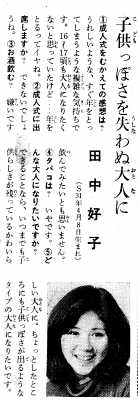 子供っぽさを失わぬ大人に
田中好子
(S31年4月8日生まれ)
①成人式をむかえての感想は?
うれしいような、すぐ年をとっ
てしまうような複雑な気持ちで
す。16~17頃も大人になりたく
ないと思っていたけど…年を
とるってイヤね。②成人式に出
席しますか? できないでしょ
うね。③お酒飲む? 嫌いです
飲んでみたいとも思いません。
④タバコは? いやです。⑤ど
んな大人になりたいですか?
できることなら、いつまでも子
供らしさが残っているかわいら
しい大人に。ちょっとしたとこ
ろにも子供っぽさが出るような
タイプの大人になりたいです。